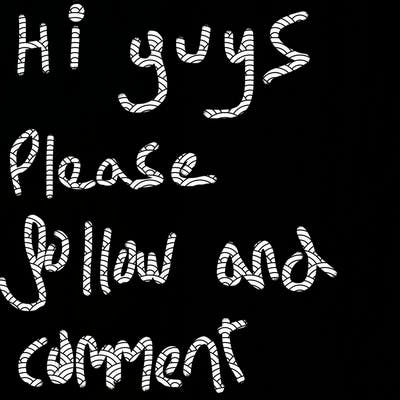 Hi guys
Please
follow and
comment